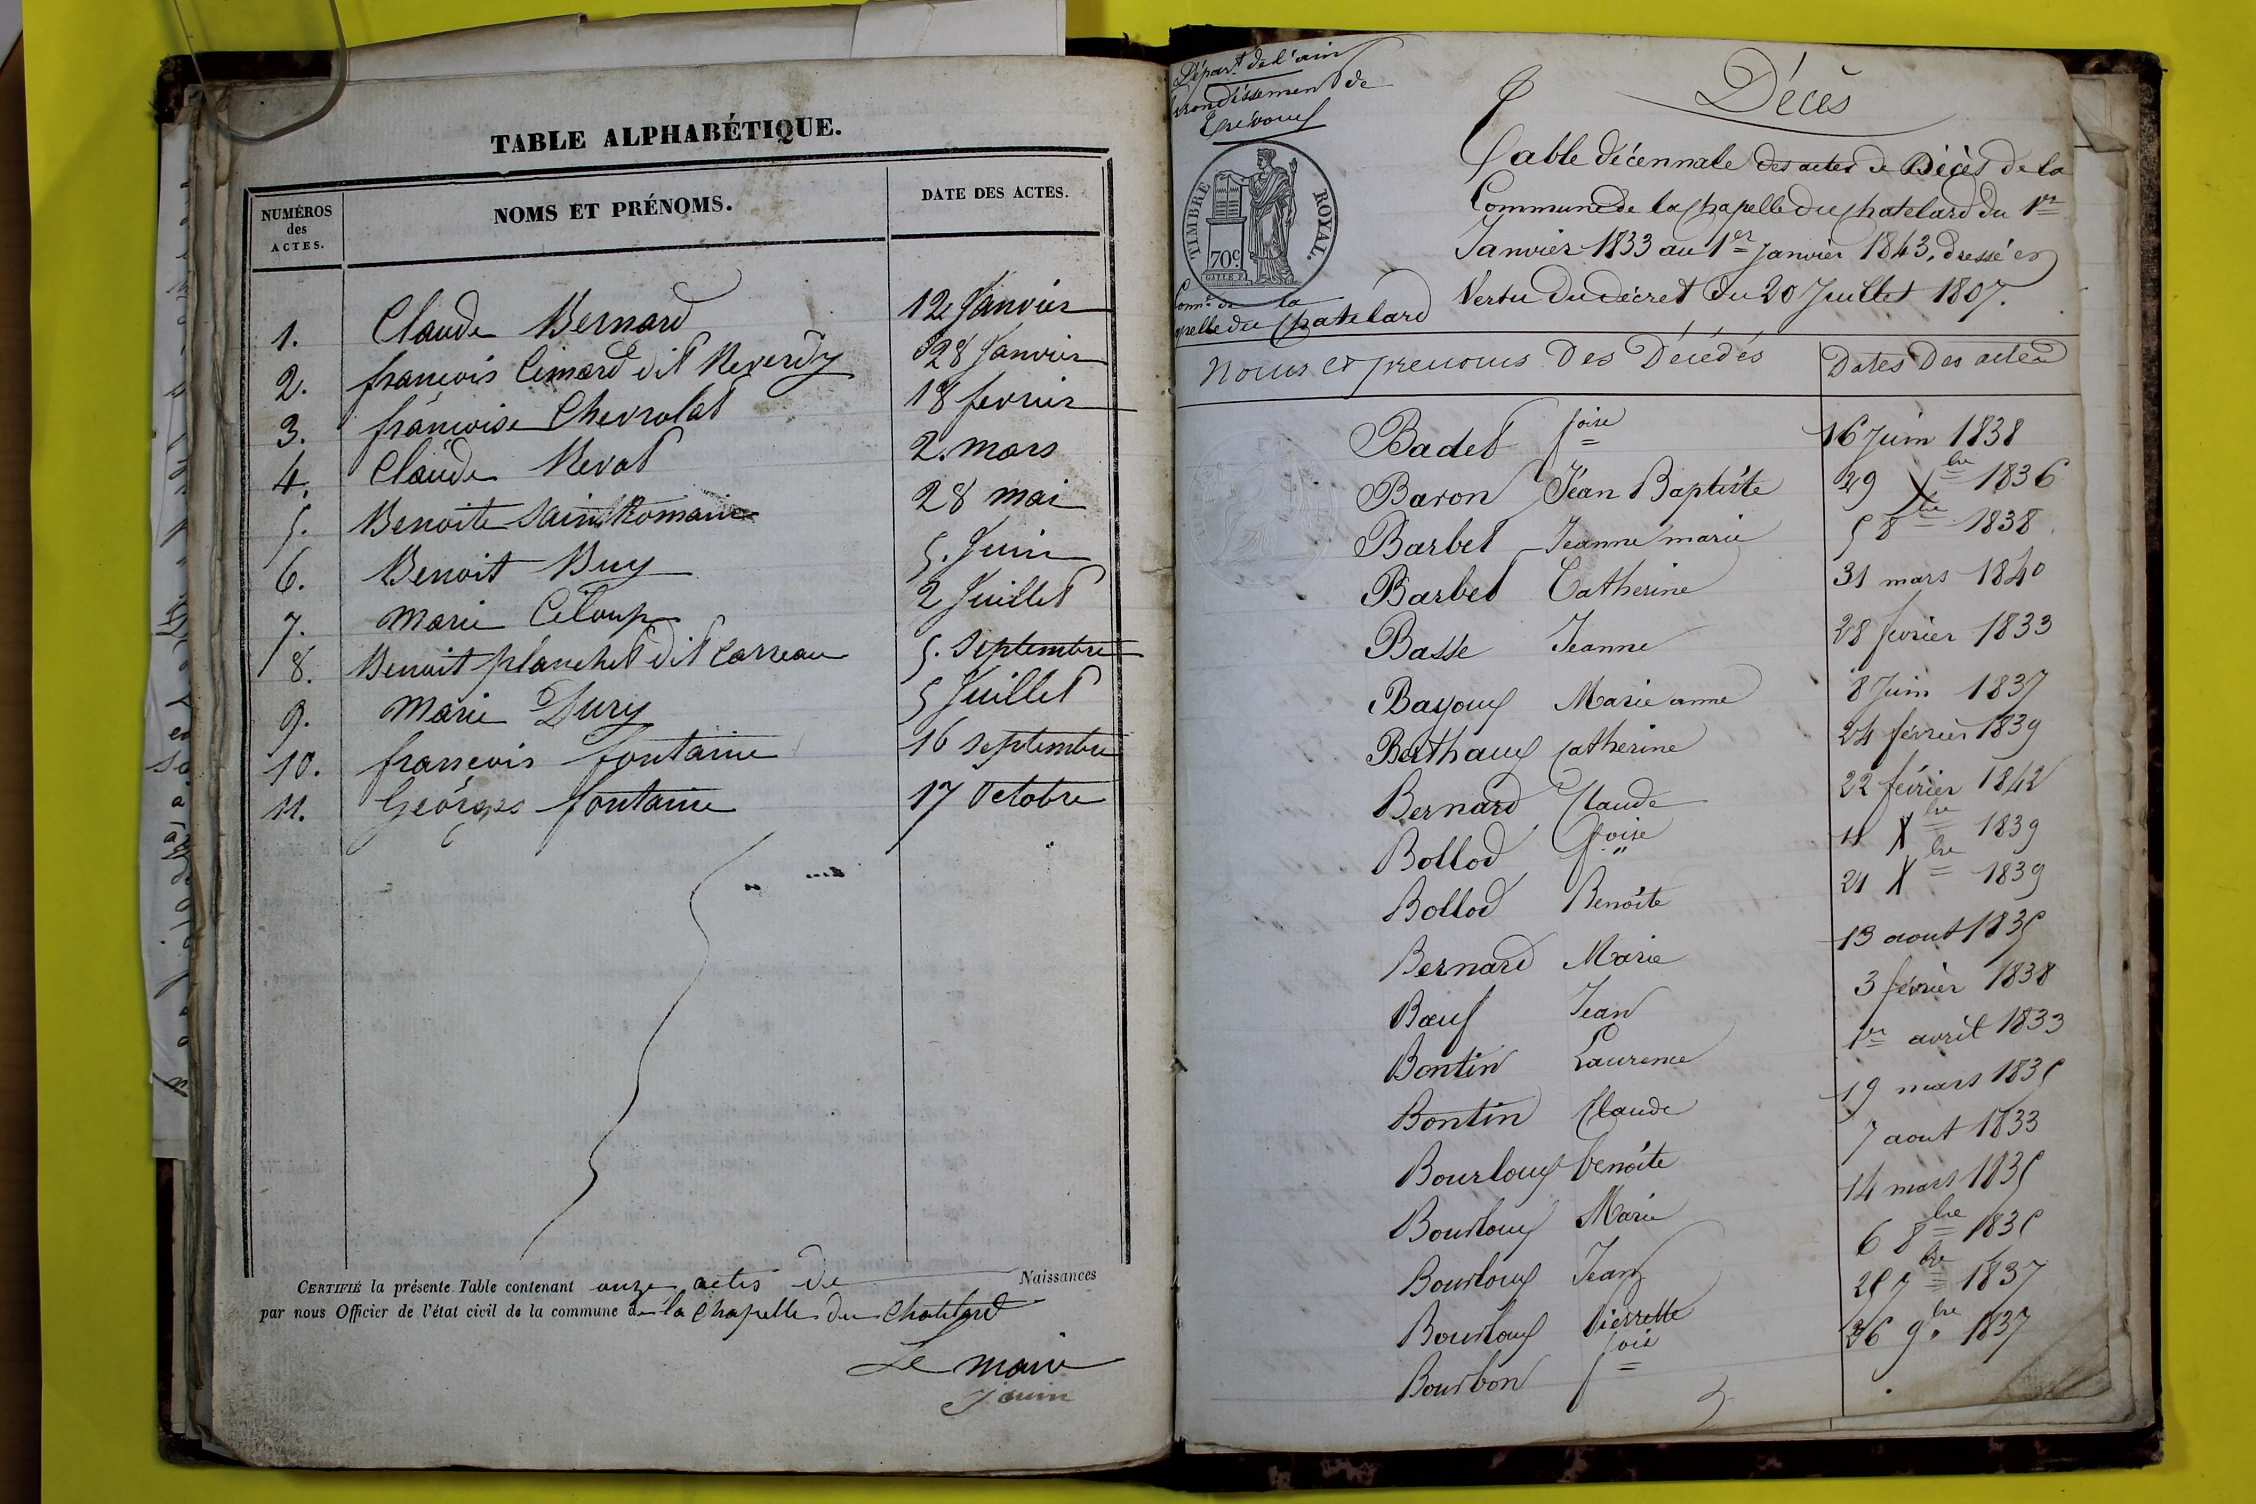 TABLE ALPHABÉTIQUE.
NUMÉROS des ACTES.
NOMS ET PRÉNOMS.
DATE DES ACTES.
1. Claude Bernard 12 Janvier
2. françois Cimard dit Reverdy 28 Janvier
3. françoise Chevrolat 18 fevrier
4. Claude Revat 2. mars
5. Benoite Saint Romain 28 mai
6. Benoit Buy 5. Juin
7. Marie Céloup 2 Juillet
8. Benoit planchet dit Carreau 5. Septembre
9. Marie Dury 5 Juillet
10. françois fontaine 16 septembre
11. Georges fontaine 17 Octobre
CERTIFIÉ la présente Table contenant onze actes de Naissances
par nous Officier de l'état civil de la commune de la Chapelle du Chatelard
Le maire
Départ. de l'ain
arrondissement de
Trevoux
TIMBRE ROYAL.
70c
Comne de la
Chapelle du Chatelard
Décès
Table décennale des actes de Décès de la
Commune de la Chapelle du Chatelard du 1er
Janvier 1833 au 1er Janvier 1843, dressé en
Vertu du décret du 20 Juillet 1807.
Noms et prenoms Des Décédés
Dates Des actes
Badet foise 16 Juin 1838
Baron Jean Baptiste 29 Xbre 1836
Barbet Jeanne marie 5 8bre 1838
Barbet Catherine 31 mars 1840
Basse Jeanne 28 fevrier 1833
Bayoux Marie anne 8 Juin 1837
Berthaux Catherine 24 février 1839
Bernard Claude 22 février 1842
Bollod foise 11 Xbre 1839
Bollod Benoite 21 Xbre 1839
Bernard Marie 13 aout 1835
Bœuf Jean 3 février 1838
Bontin Laurence 1er avril 1833
Bontin Claude 19 mars 1835
Bourloux benoite 7 aout 1833
Bourloux Marie 14 mars 1835
Bourloux Jean 6 8bre 1835
Bourloux Pierrette 25 7bre 1837
Bourbon fois 26 9bre 1837